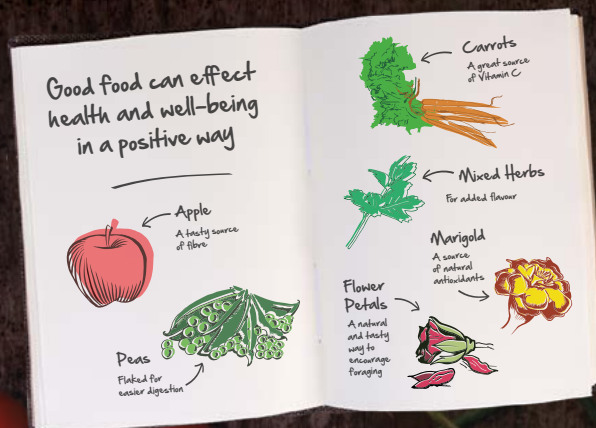 Good food can effect
health and well-being
in a positive way
Apple
A tasty source
of fibre
Peas
Flaked for
easier digestion
Carrots
A great source
of Vitamin C
Mixed Herbs
For added flavour
Marigold
A source
of natural
antioxidants
Flower
Petals
A natural
and tasty
way to
encourage
foraging